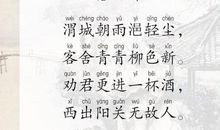 wèi chéng zhāo yǔ yì qīng chén
渭城朝雨浥轻尘，
kè shè qīng qīng liǔ sè xīn
客舍青青柳色新。
quàn jūn gèng jìn yì bēi jiǔ
劝君更进一杯酒，
xī chū yáng guān wú gù rén
西出阳关无故人。